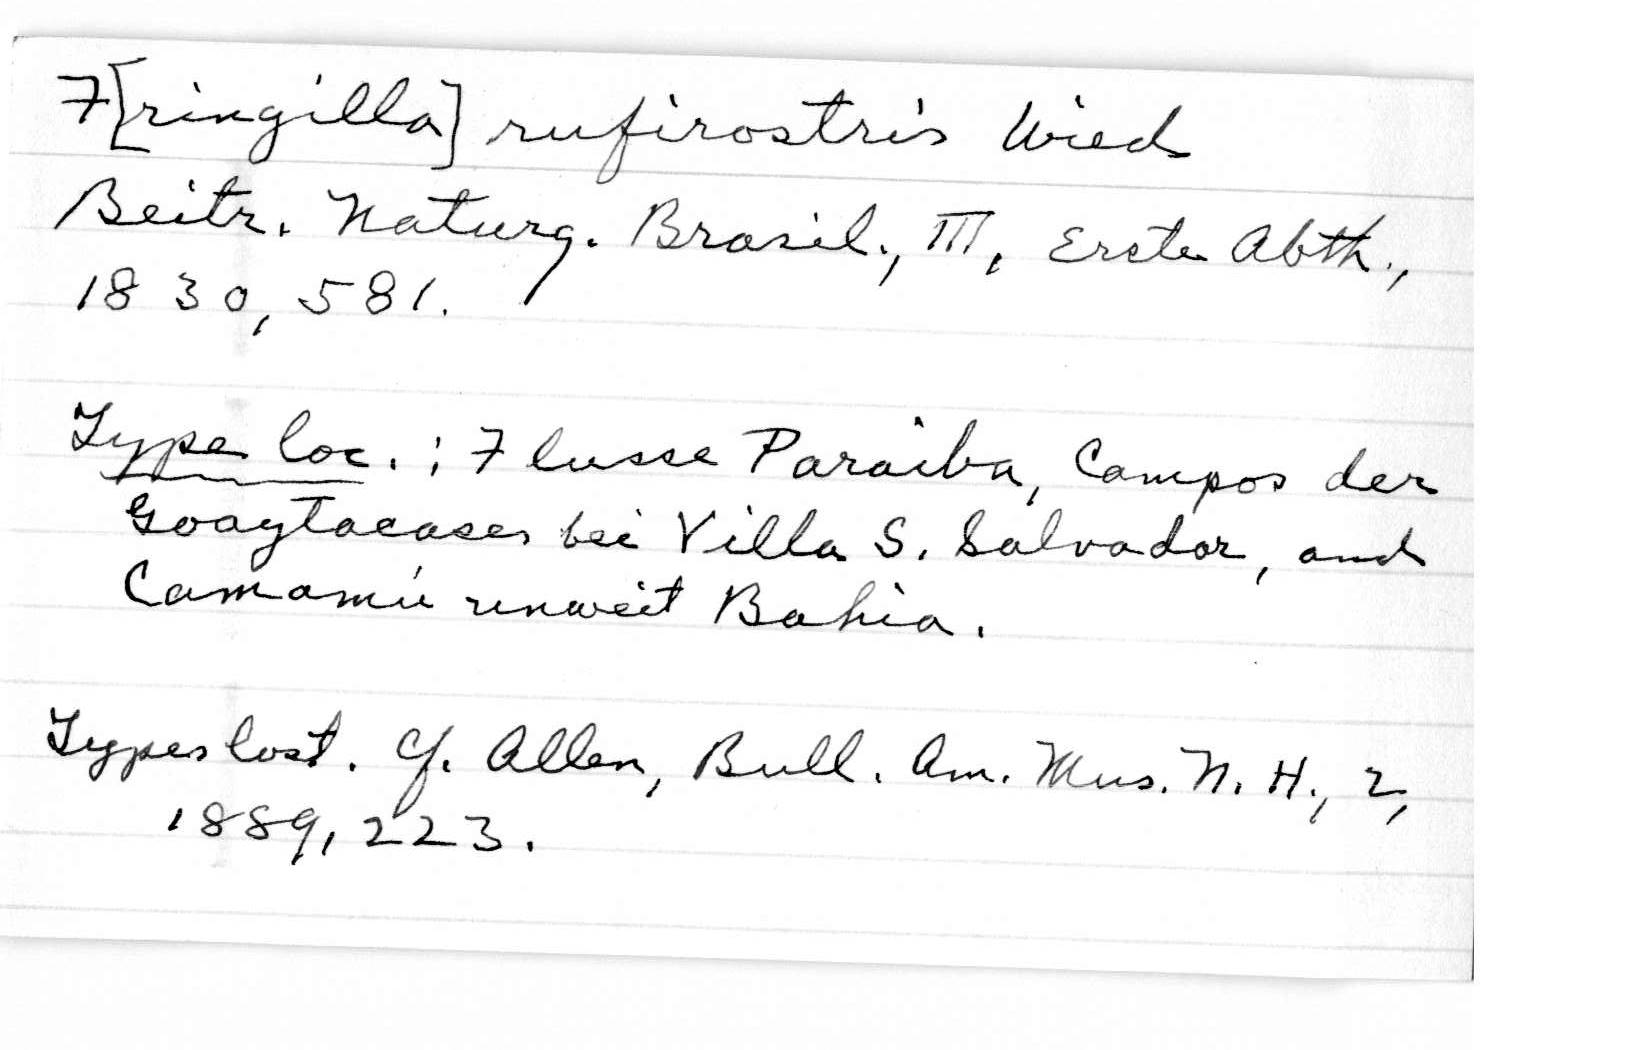 F[ringilla] rufirostris Wied
Beitr. Naturg. Brasil., III, Erste Abth.,
1830, 581.
Type loc.: Flusse Paraiba, Campos der
Goaytacases bei Villa S. Salvador, and
Camamú unweit Bahia.
Types lost. Cf. Allen, Bull. Am. Mus. N. H., 2,
1889, 223.